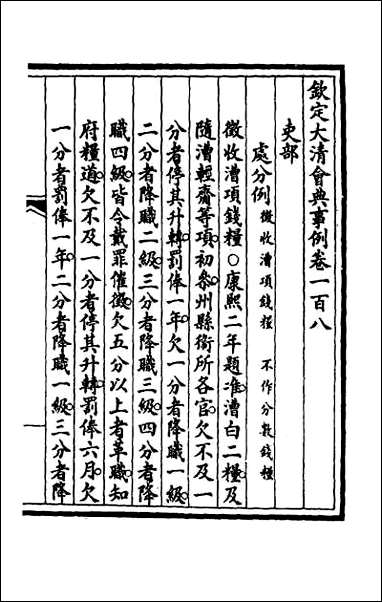 欽定大清會典事例卷一百八
吏部
處分例 徵收漕項錢糧 不作分數錢糧
徵收漕項錢糧○康熙二年題准漕白二糧及
隨漕輕齎等項初參州縣衞所各官欠不及一
分者停其升轉罰俸一年欠一分者降職一級
二分者降職二級三分者降職三級四分者降
職四級皆令戴罪催徵欠五分以上者革職知
府糧道欠不及一分者停其升轉罰俸六月欠
一分者罰俸一年二分者降職一級三分者降